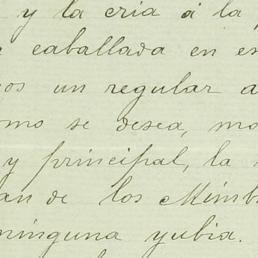 y la cria á la
caballada en
un regular
se desea, mo
y principal, la
de los Mimb
ninguna yubia.